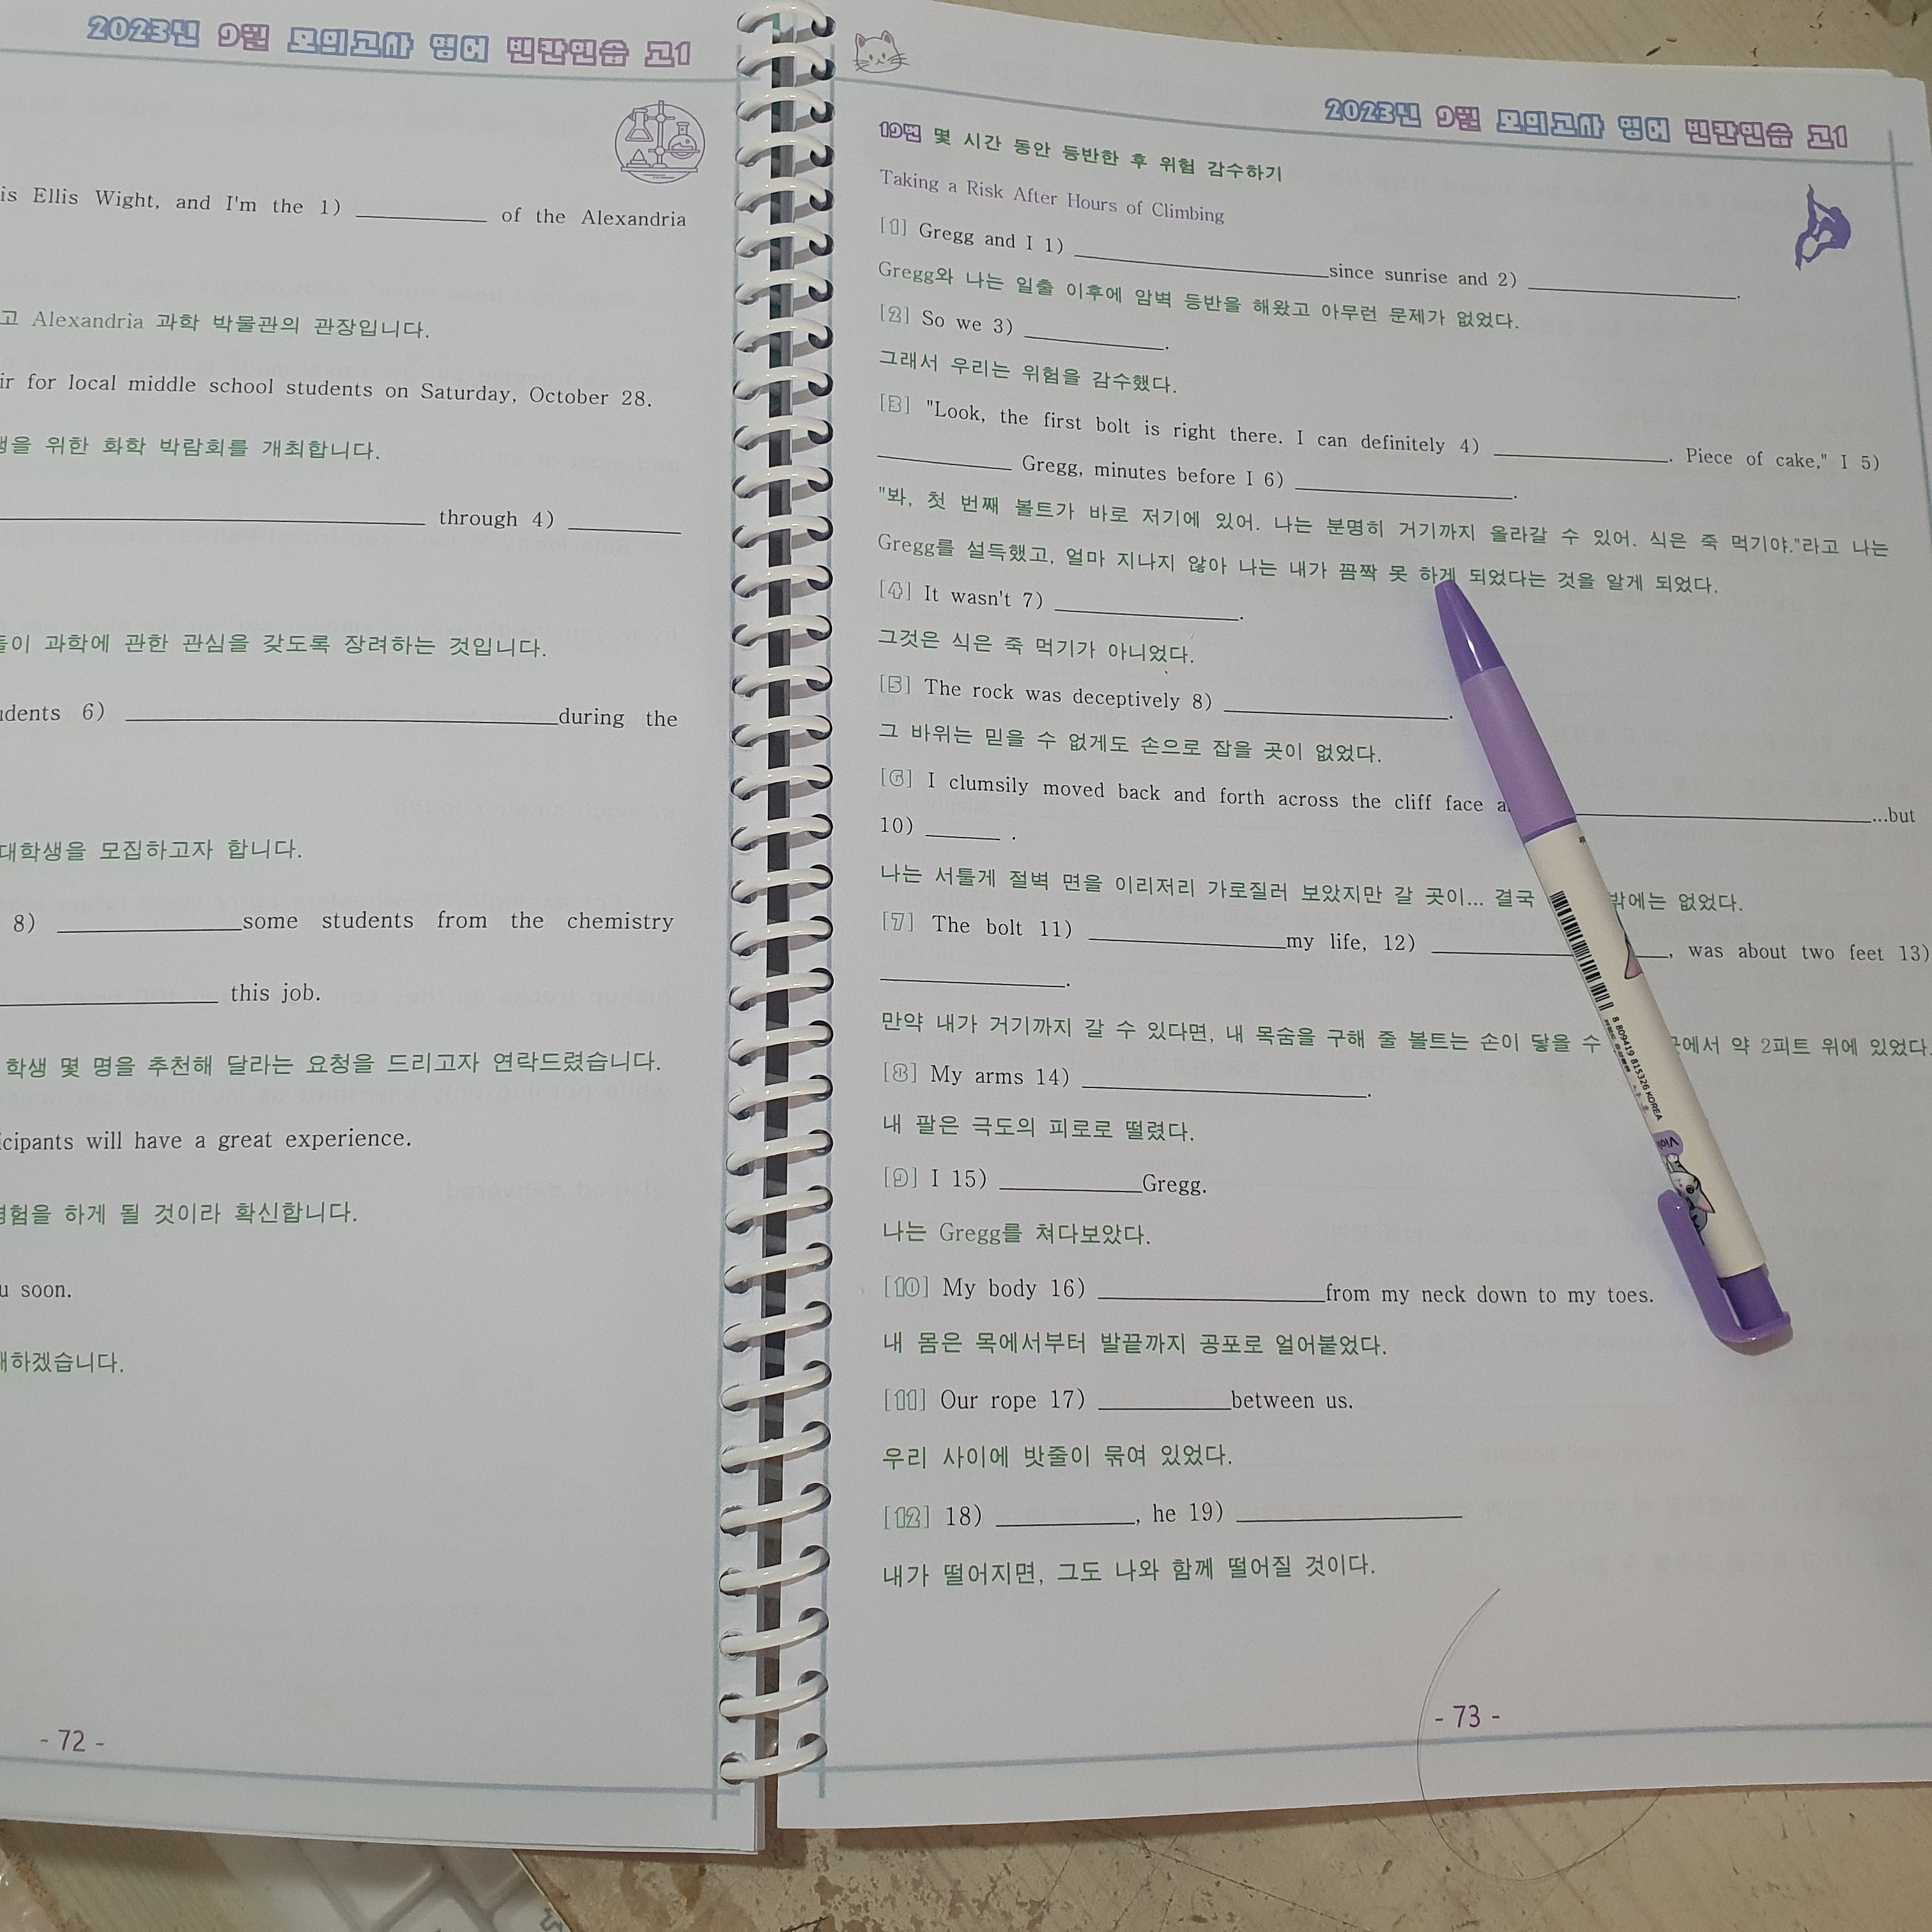 2023년 9월 모의고사 영어 빈칸연습 고1
is Ellis Wight, and I'm the 1) __________ of the Alexandria
고 Alexandria 과학 박물관의 관장입니다.
for local middle school students on Saturday, October 28.
위한 화학 박람회를 개최합니다.
__________ through 4) __________
과학에 관한 관심을 갖도록 장려하는 것입니다.
6) __________during the
대학생을 모집하고자 합니다.
8) __________some students from the chemistry
__________ this job.
학생 몇 명을 추천해 달라는 요청을 드리고자 연락드렸습니다.
will have a great experience.
하게 될 것이라 확신합니다.
soon.
- 72 -
2023년 9월 모의고사 영어 빈칸연습 고1
19번 몇 시간 동안 등반한 후 위험 감수하기
Taking a Risk After Hours of Climbing
[1] Gregg and I 1) __________since sunrise and 2) __________.
Gregg와 나는 일출 이후에 암벽 등반을 해왔고 아무런 문제가 없었다.
[2] So we 3) __________.
그래서 우리는 위험을 감수했다.
[3] "Look, the first bolt is right there. I can definitely 4) __________. Piece of cake," I 5)
__________ Gregg, minutes before I 6) __________.
"봐, 첫 번째 볼트가 바로 저기에 있어. 나는 분명히 거기까지 올라갈 수 있어. 식은 죽 먹기야."라고 나는
Gregg를 설득했고, 얼마 지나지 않아 나는 내가 꼼짝 못 하게 되었다는 것을 알게 되었다.
[4] It wasn't 7) __________.
그것은 식은 죽 먹기가 아니었다.
[5] The rock was deceptively 8) __________.
그 바위는 믿을 수 없게도 손으로 잡을 곳이 없었다.
[6] I clumsily moved back and forth across the cliff face __________...but
10) ______ .
나는 서툴게 절벽 면을 이리저리 가로질러 보았지만 갈 곳이... 결국 밖에는 없었다.
[7] The bolt 11) __________my life, 12) __________, was about two feet 13)
__________.
만약 내가 거기까지 갈 수 있다면, 내 목숨을 구해 줄 볼트는 손이 닿을 수 약 2피트 위에 있었다.
[8] My arms 14) __________.
내 팔은 극도의 피로로 떨렸다.
[9] I 15) __________Gregg.
나는 Gregg를 쳐다보았다.
[10] My body 16) __________from my neck down to my toes.
내 몸은 목에서부터 발끝까지 공포로 얼어붙었다.
[11] Our rope 17) __________between us.
우리 사이에 밧줄이 묶여 있었다.
[12] 18) __________, he 19) __________
내가 떨어지면, 그도 나와 함께 떨어질 것이다.
- 73 -
8 809419 815326 KOREA